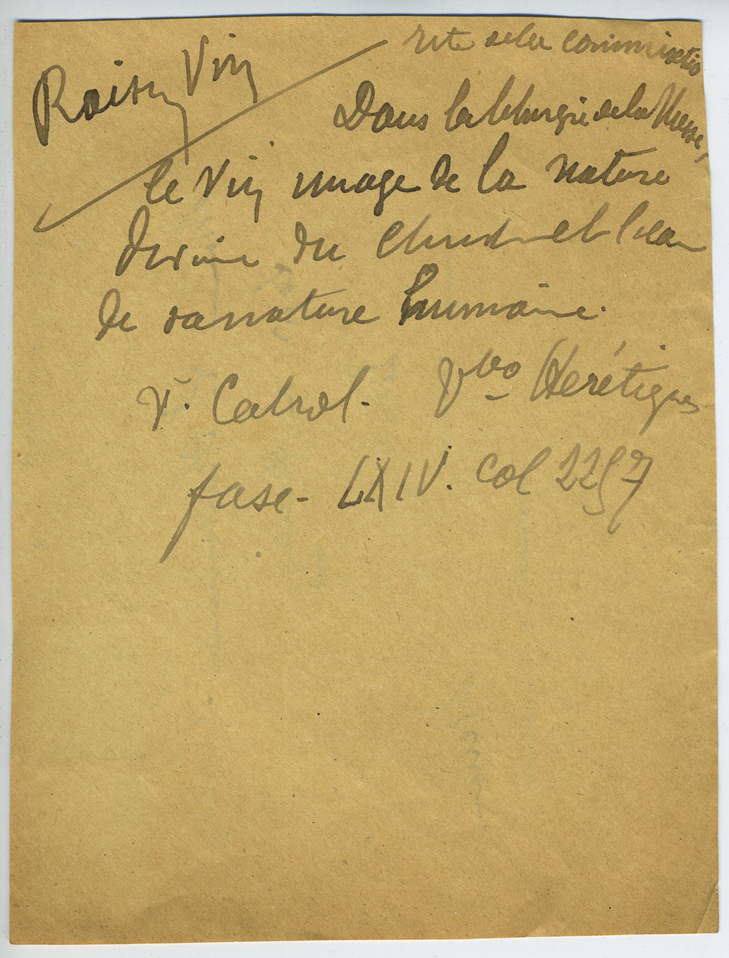 Raisin Vin
rite de la commixtion
Dans la liturgie de la Messe,
le Vin image de la nature
divine du Christ et l'eau
de sa nature humaine.
V. Cabrol. Vbo Hérétiques
fasc. LXIV. col 2257